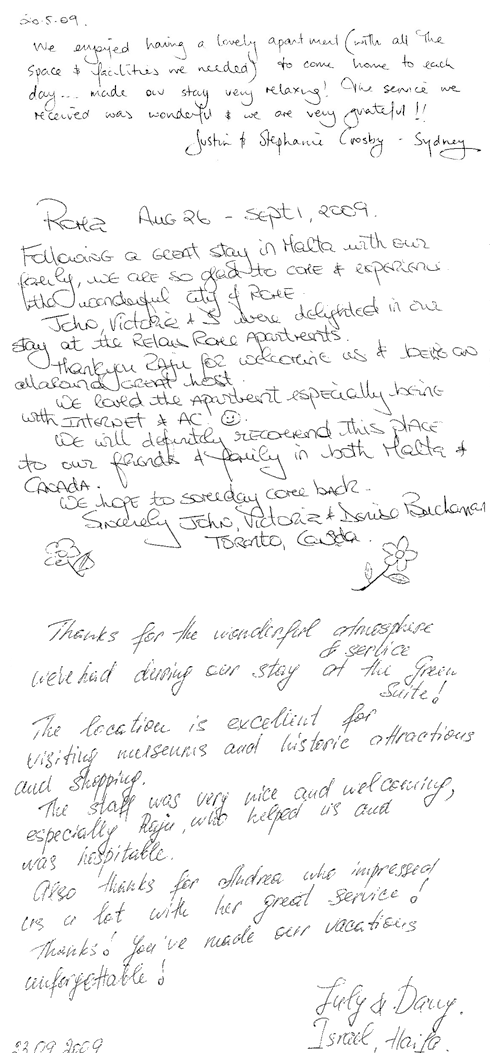 20.5.09.
We enjoyed having a lovely apartment (with all the
space & facilities we needed) to come home to each
day... made our stay very relaxing! The service we
received was wonderful & we are very grateful!!
Justin & Stephanie Crosby - Sydney
Roma Aug 26 - Sept 1, 2009.
Following a great stay in Malta with our
family, we are so glad to come & experience
the wonderful city of Rome.
John, Victoria & I were delighted in our
stay at the Relais Rome Apartments.
Thankyou Raju for welcoming us & being an
allaround great host.
We loved the Apartment especially being
with Internet & AC ☺.
We will definitely recomend this place
to our friends & family in both Malta &
Canada.
We hope to someday come back.
Sincerely John, Victoria & Denise Buchanan
Toronto, Canada.
Thanks for the wonderful atmosphere
& service
we've had during our stay at the Green
Suite!
The location is excellent for
visiting museums and historic attractions
and shopping.
The staff was very nice and welcoming,
especially Raju, who helped us and
was hospitable.
Also thanks for Andrea who impressed
us a lot with her great service!
Thanks! You've made our vacations
unforgettable!
July & Dany.
Israel, Haifa.
23.09.2009